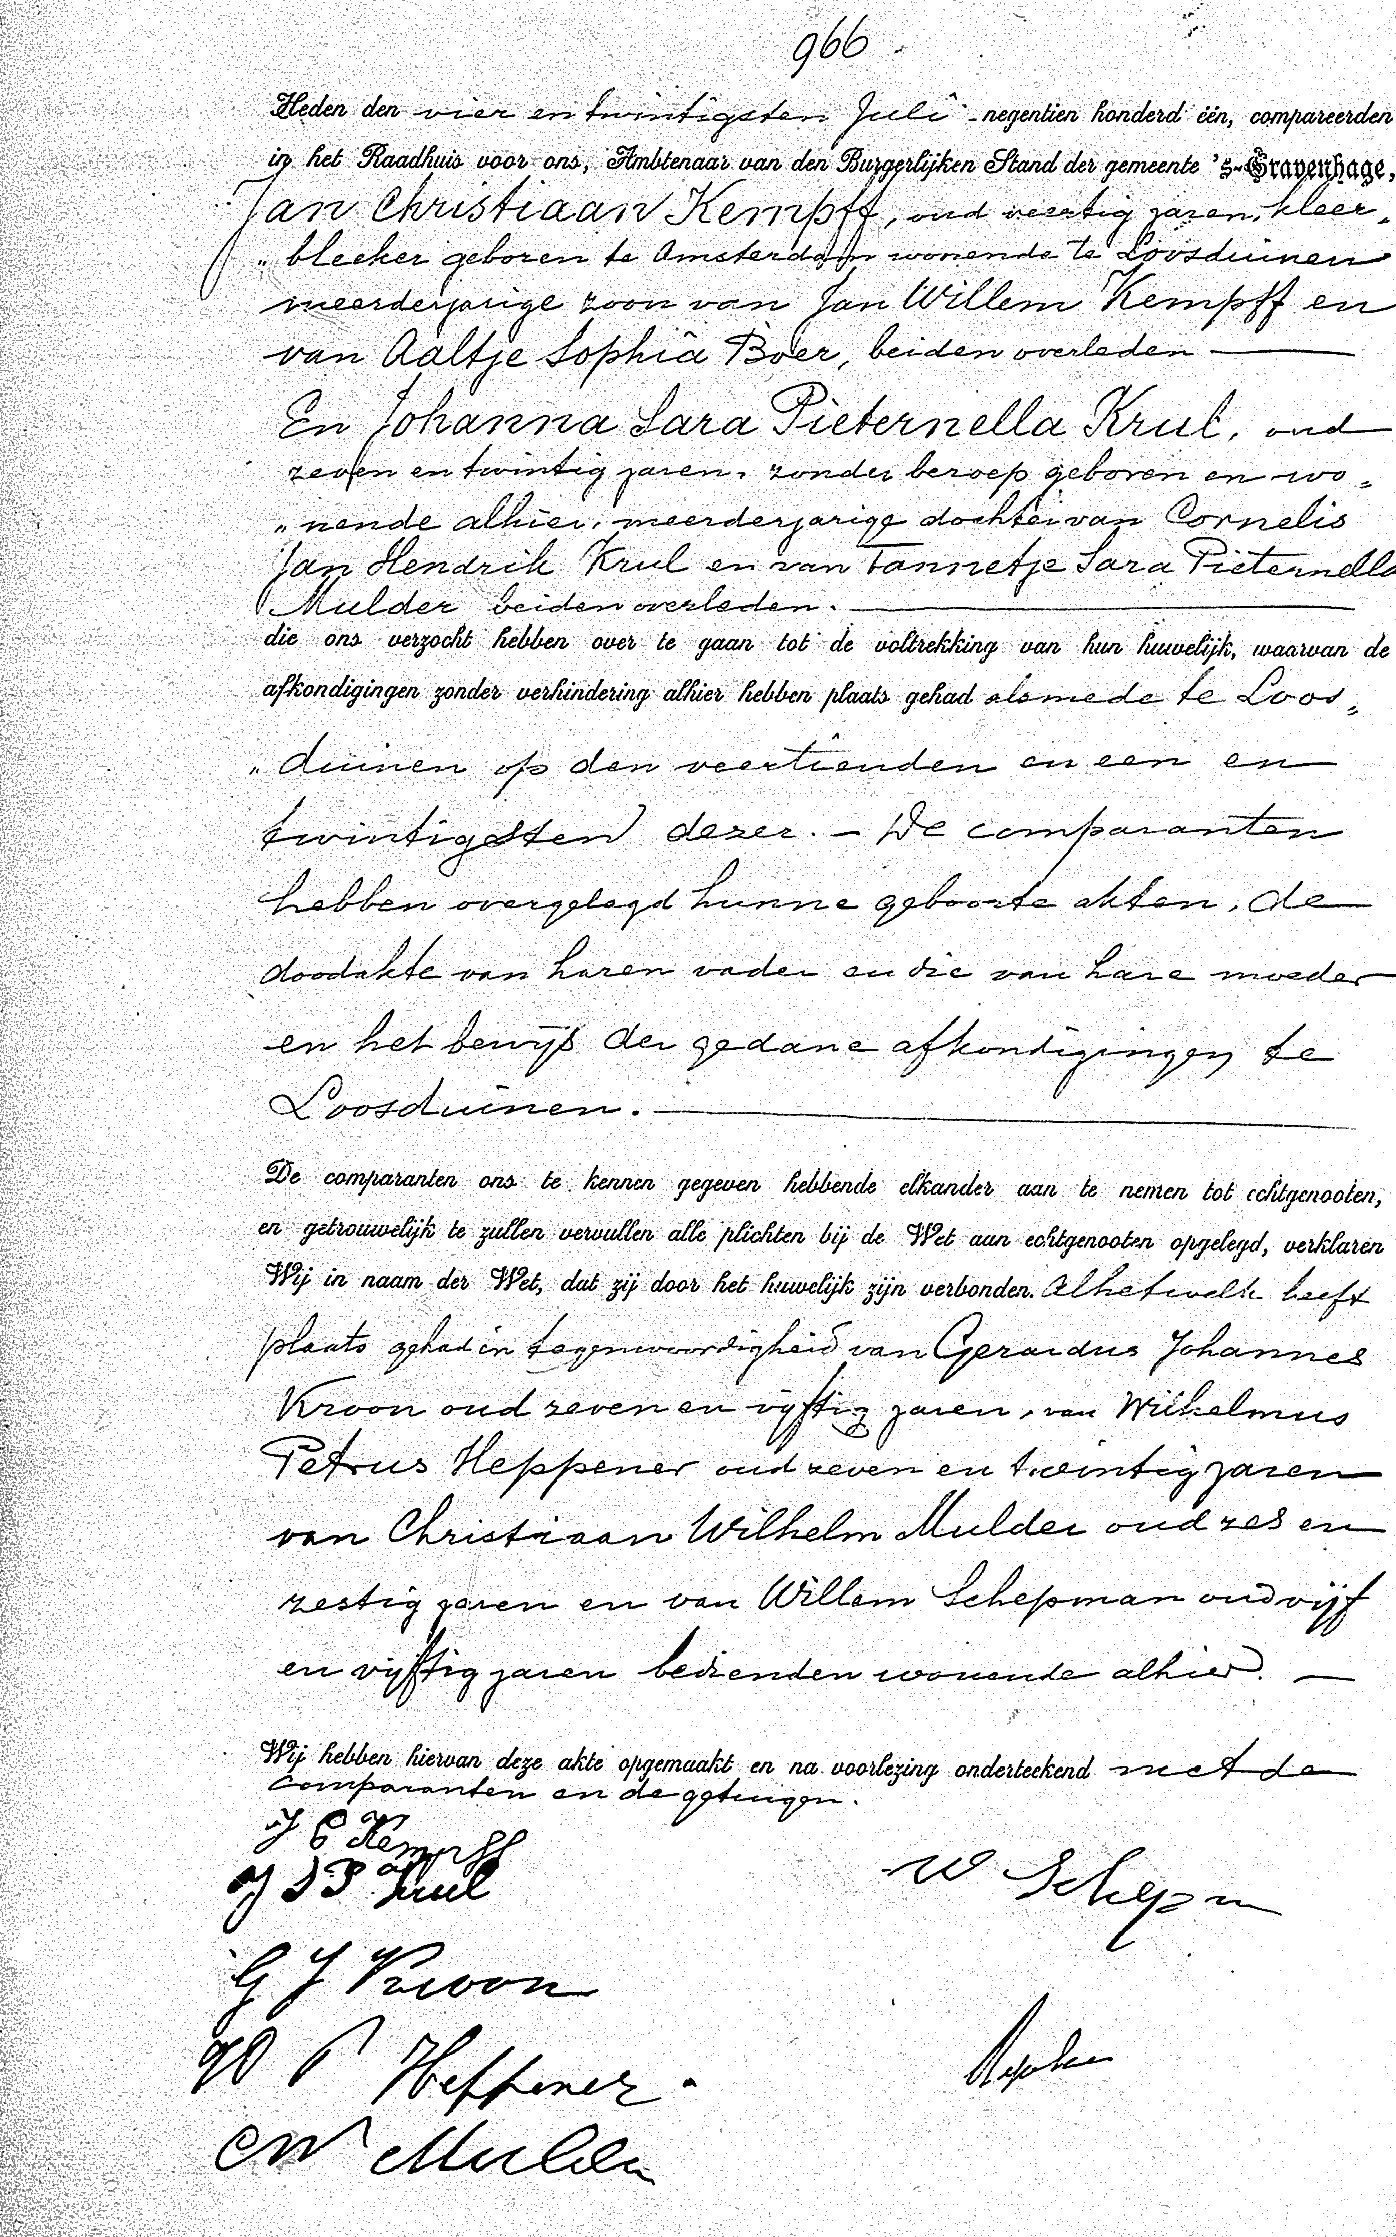 966
Heden den vier en twintigsten Juli negentien honderd één, compareerden
in het Raadhuis voor ons, Ambtenaar van den Burgerlijken Stand der gemeente 's-Gravenhage,
Jan Christiaan Kempff, oud veertig jaren, kleer„
„bleeker geboren te Amsterdam wonende te Loosduinen
meerderjarige zoon van Jan Willem Kempff en
van Aaltje Sophia Boer, beiden overleden
En Johanna Sara Pieternella Krul, oud
zeven en twintig jaren, zonder beroep geboren en wo„
„nende alhier, meerderjarige dochter van Cornelis
Jan Hendrik Krul en van Tannetje Sara Pieternella
Mulder beiden overleden.
die ons verzocht hebben over te gaan tot de voltrekking van hun huwelijk, waarvan de
afkondigingen zonder verhindering alhier hebben plaats gehad alsmede te Loos„
„duinen op den veertienden en een en
twintigsten dezer. — De comparanten
hebben overgelegd hunne geboorte akten, de
doodakte van haren vader en die van hare moeder
en het bewijs der gedane afkondigingen te
Loosduinen.
De comparanten ons te kennen gegeven hebbende elkander aan te nemen tot echtgenooten,
en getrouwelijk te zullen vervullen alle plichten bij de Wet aan echtgenooten opgelegd, verklaren
Wij in naam der Wet, dat zij door het huwelijk zijn verbonden. Alhetwelk heeft
plaats gehad in tegenwoordigheid van Gerardus Johannes
Kroon oud zeven en vijftig jaren, van Wilhelmus
Petrus Heppener oud zeven en twintig jaren
van Christiaan Wilhelm Mulder oud zes en
zestig jaren en van Willem Schepman oud vijf
en vijftig jaren bedienden wonende alhier. —
Wij hebben hiervan deze akte opgemaakt en na voorlezing onderteekend met de
comparanten en de getuigen.
J C Kempff
J S P Krul
W Schepm
G J Kroon
W P Heppener.
C W Mulder